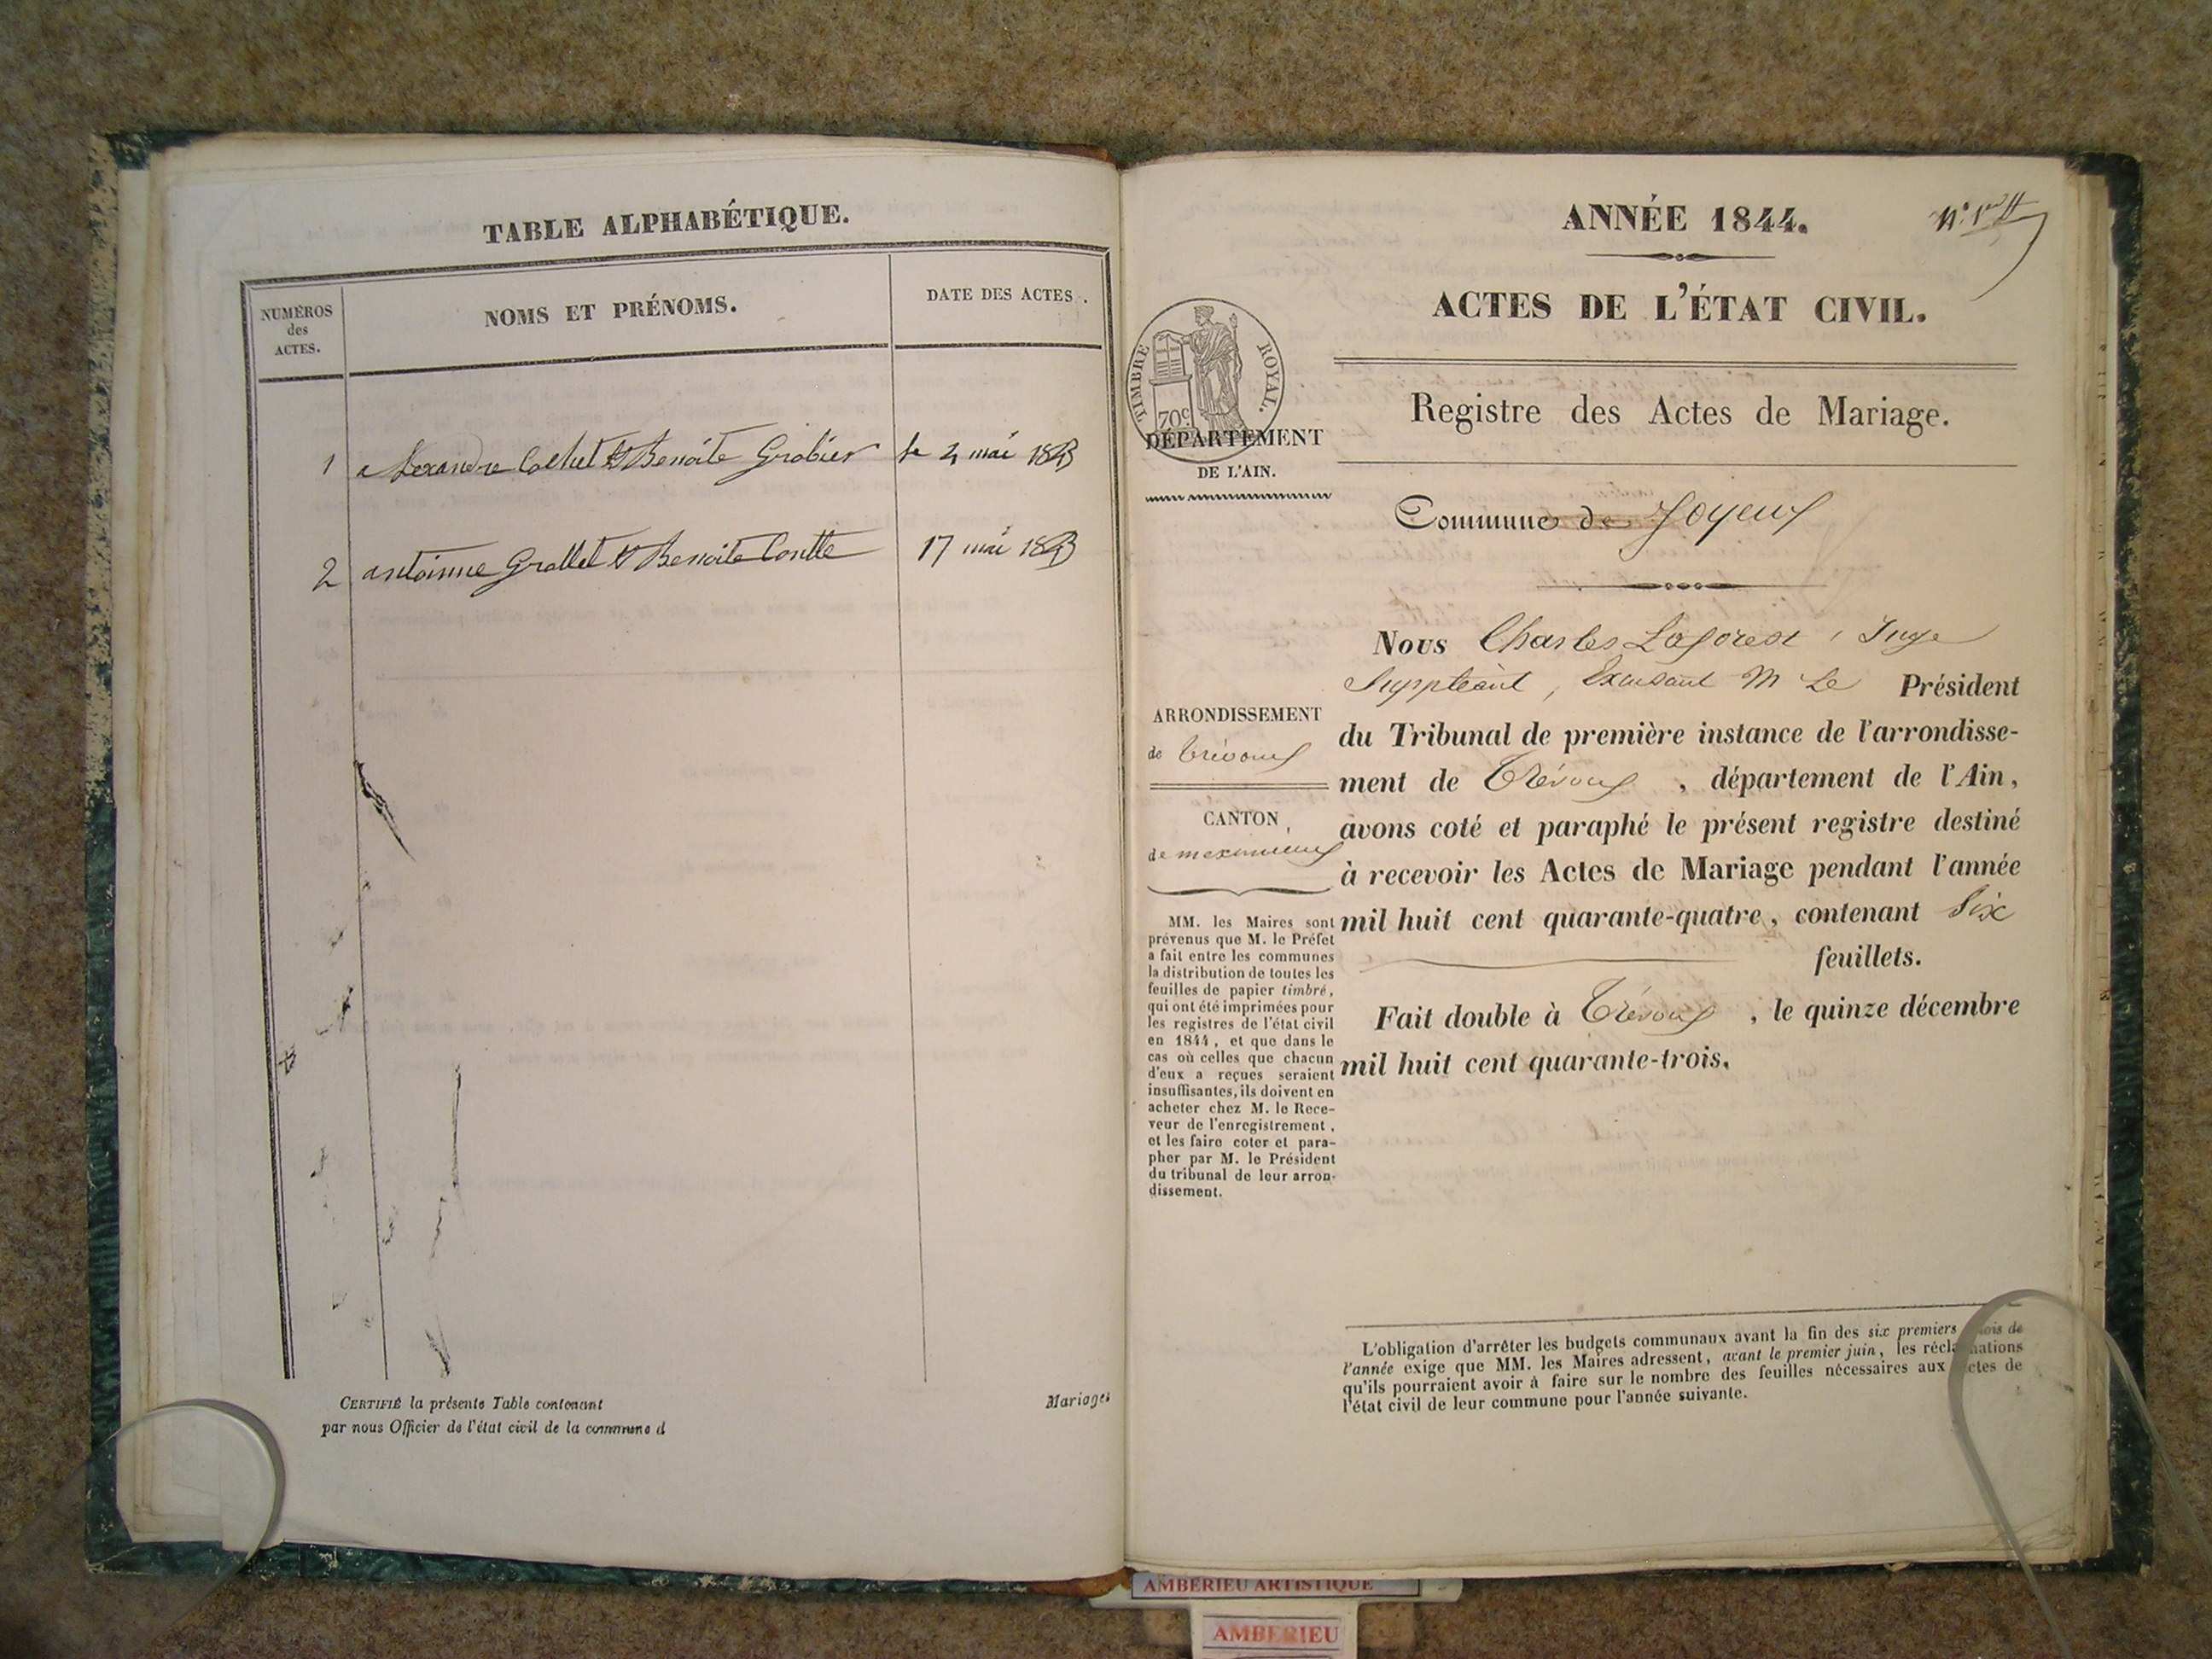 TABLE ALPHABÉTIQUE.
NUMÉROS
des
ACTES.
NOMS ET PRÉNOMS.
DATE DES ACTES.
1 alexandre Cochet & Benoite Grobier le 2 mai 1843
2 antoinne Grollet & Benoite Contte 17 mai 1843
CERTIFIÉ la présente Table contenant Mariages
par nous Officier de l'état civil de la commune d
ANNÉE 1844.
ACTES DE L'ÉTAT CIVIL.
TIMBRE ROYAL.
70c
DÉPARTEMENT
DE L'AIN.
Registre des Actes de Mariage.
Commune de Joyeux
ARRONDISSEMENT
de trévoux
CANTON
de meximieux
MM. les Maires sont
prévenus que M. le Préfet
a fait entre les communes
la distribution de toutes les
feuilles de papier timbré,
qui ont été imprimées pour
les registres de l'état civil
en 1844, et que dans le
cas où celles que chacun
d'eux a reçues seraient
insuffisantes, ils doivent en
acheter chez M. le Rece-
veur de l'enregistrement,
et les faire coter et para-
pher par M. le Président
du tribunal de leur arron-
dissement.
Nous Charles Laforest, Juge
Suppléant, Excusant M Le Président
du Tribunal de première instance de l'arrondisse-
ment de Trévoux, département de l'Ain,
avons coté et paraphé le présent registre destiné
à recevoir les Actes de Mariage pendant l'année
mil huit cent quarante-quatre, contenant Six
feuillets.
Fait double à Trévoux, le quinze décembre
mil huit cent quarante-trois.
L'obligation d'arrêter les budgets communaux avant la fin des six premiers mois de
l'année exige que MM. les Maires adressent, avant le premier juin, les réclamations
qu'ils pourraient avoir à faire sur le nombre des feuilles nécessaires aux actes de
l'état civil de leur commune pour l'année suivante.
AMBERIEU ARTISTIQUE
AMBERIEU